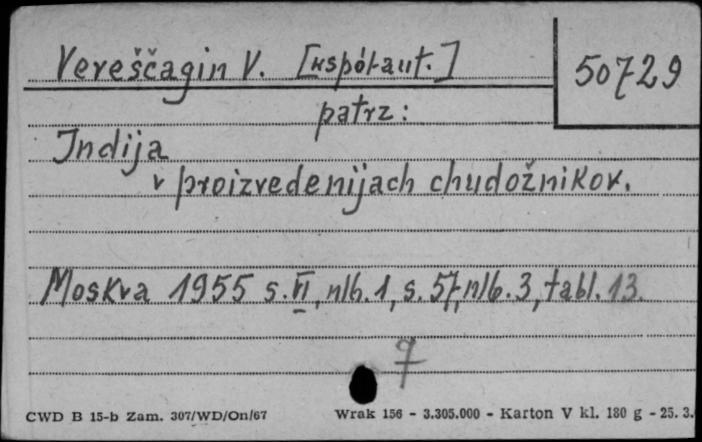 Vereščagin V. [współ-aut.]
50729
patrz:
Indija
v proizvedenijach chudožnikov.
Moskva 1955 s. VI, nlb. 1, s. 57, nlb. 3, tabl. 13.
7
CWD B 15-b Zam. 307/WD/On/67 Wrak 156 - 3.305.000 - Karton V kl. 180 g - 25. 3.